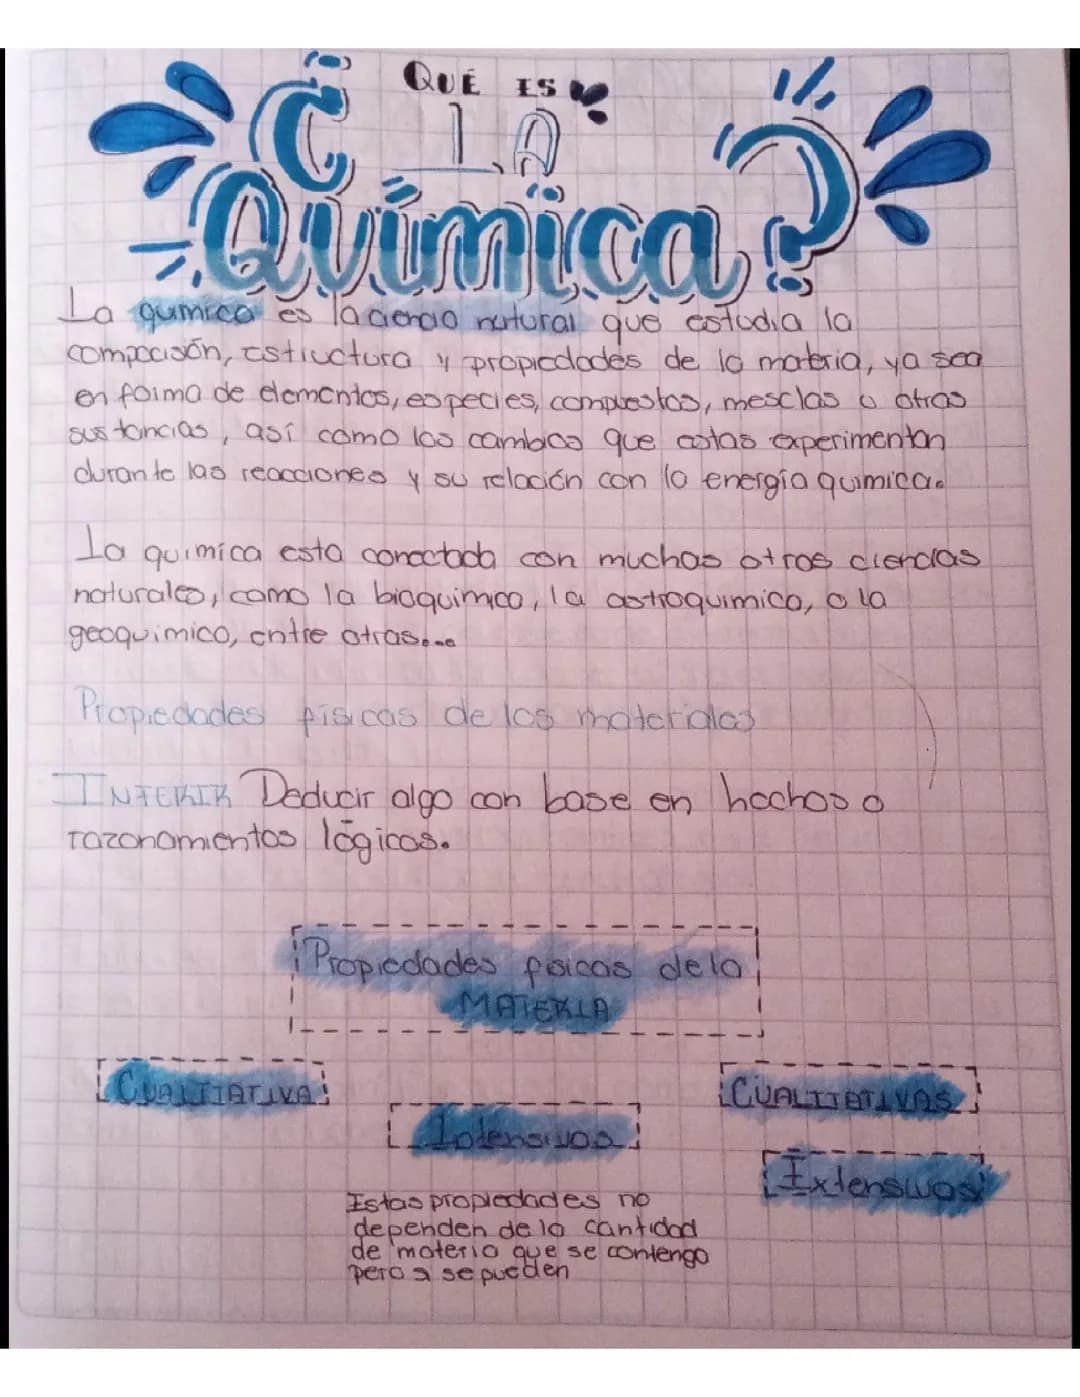 ¿QUÉ ES
LA
Química?
La quimica es la ciencia natural que estudia la
composisón, estructura y propiedades de la materia, ya sea
en forma de elementos, especies, compuestos, mesclas u otras
sustancias, así como los cambios que estas experimentan
durante las reacciones y su relación con la energía quimica.
La quimica esta conectada con muchas otras ciencias
naturales, como la bioquimica, la astroquimica, o la
geoquimica, entre otras....
Propiedades fisicas de los materiales
INFERIR Deducir algo con base en hechos o
razonamientos lógicos.
Propiedades fisicas de la
MATERIA
CUALITATIVA
CUALITATIVAS
Intensivas
Extensivas
Estas propiedades no
dependen de la cantidad
de materia que se contenga
pero si se pueden